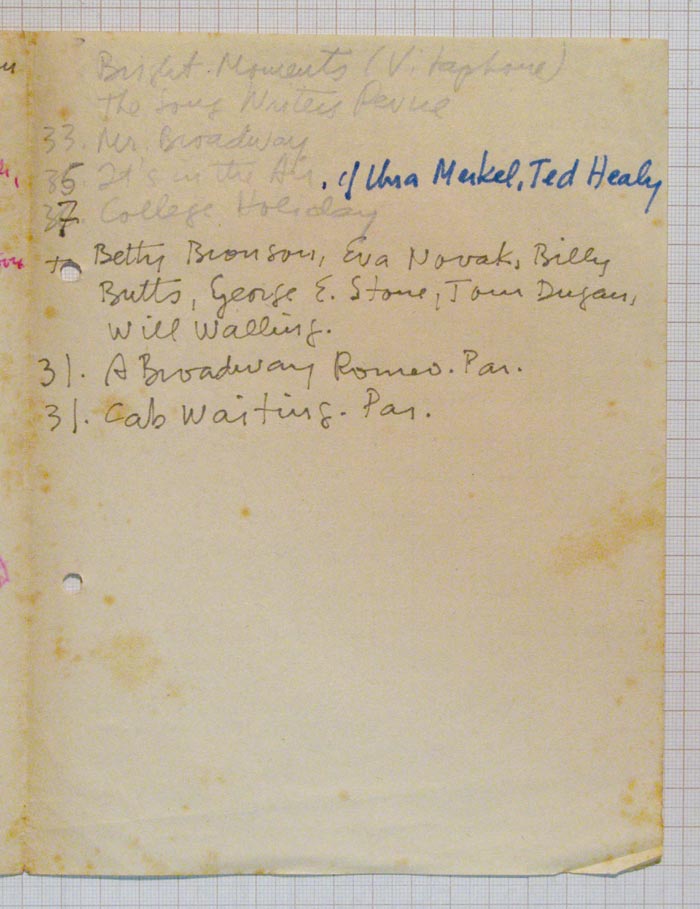 Bright Moments (Vitaphone)
The Song Writers Revue
33. Mr. Broadway
35 It's in the Air, c/ Una Merkel, Ted Healy
37. College Holiday
to Betty Bronson, Eva Novak, Billy
Butts, George E. Stone, Tom Dugan,
Will Walling.
31. A Broadway Romeo. Par.
31. Cab Waiting. Par.